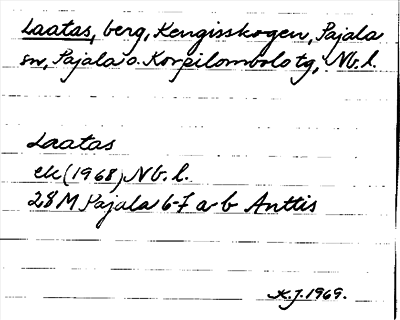 Laatas, berg, Kengisskogen, Pajala
sn, Pajala o. Korpilombolo tg, Nb. l.
Laatas
ek (1968) Nb. l.
28 M Pajala 6-7 a-b Anttis
K.J. 1969.